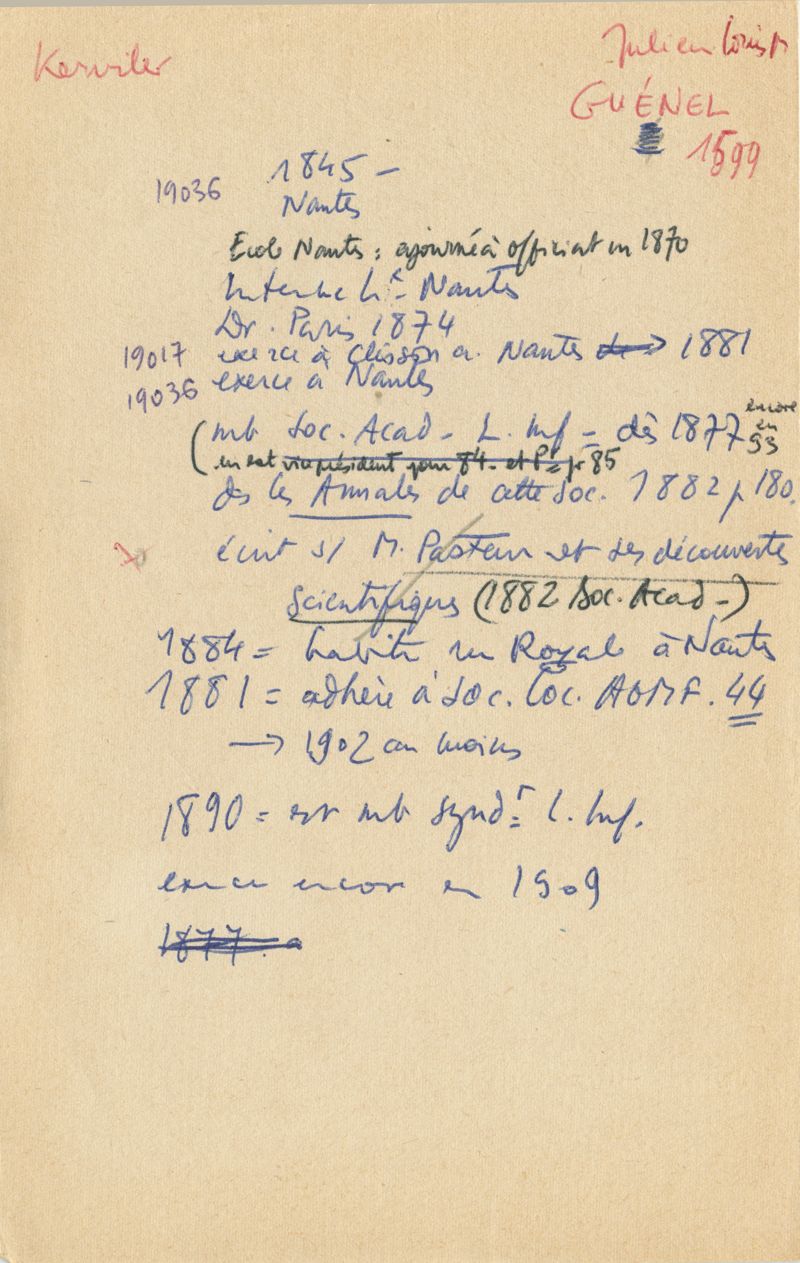 Kerviler
Julien Louis M
GUÉNEL
1599
1845 –
19036
Nantes
Ecole Nantes : ajourné à officiat en 1870
Interne Hx Nantes
Dr. Paris 1874
19017 exerce à Clisson a. Nantes → 1881
19036 exerce à Nantes
(mb Soc. Acad – L. Inf = dès 1877 encore en 93
en est vice président pour 84 – et Pt pr 85
ds les Annales de cette Soc. 1882 p 180.
écrit s/ M. Pasteur et ses découvertes
scientifiques (1882 Soc. Acad –)
1884 = habite rue Royale à Nantes
1881 = adhère à Soc. Loc. AGMF. 44
→ 1902 au moins
1890 = est mb synd. L. Inf.
exerce encore en 1909
1877